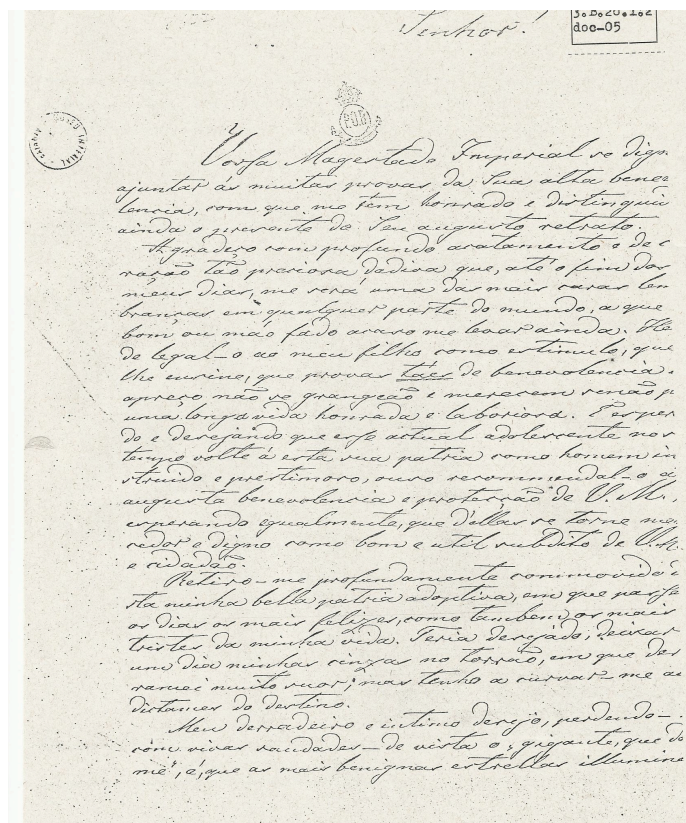 Senhor!
3.B.20.1.2
doc-05
P.O.B
Vossa Magestade Imperial se dign
ajuntar ás muitas provas da Sua alta bene
lencia, com que me tem honrado e distinguiu
ainda o presente de Seu augusto retrato.
Agradeço com profundo acatamento o de c
ração tão preciosa dadiva que, até o fim dos
meus dias, me será uma das mais caras lem
branças em qualquer parte do mundo, a que
bom ou máo fado acaso me levar ainda. He
de legal-o ao meu filho como estimulo, que
lhe ensine, que provas táes de benevolencia e
apreço não se grangeão e merecem senão p
uma longa vida honrada e laboriosa. E espe
do e desejando que esse actual adolescente nos
tempo volte á esta sua patria como homem in
struido e prestimoso, ouso recommendal-o á
augusta benevolencia e protecção de V. M.,
esperando egualmente, que d'ellas se torne me
cedor e digno como bom e util subdito de V.M.
e cidadão.
Retiro-me profundamente commovido d
sta minha bella patria adoptiva, em que passe
os dias os mais felizes, como tambem os mais
tristes da minha vida. Teria desejado, deixar
um dia minhas cinzas no torrão, em que der
ramei muito suor; mas tenho a curvar-me ao
dictames do destino.
Meu derradeiro e intimo desejo, perdendo-
com vivas saudades-de vista o „gigante, que do
me", é, que as mais benignas estrellas illumine